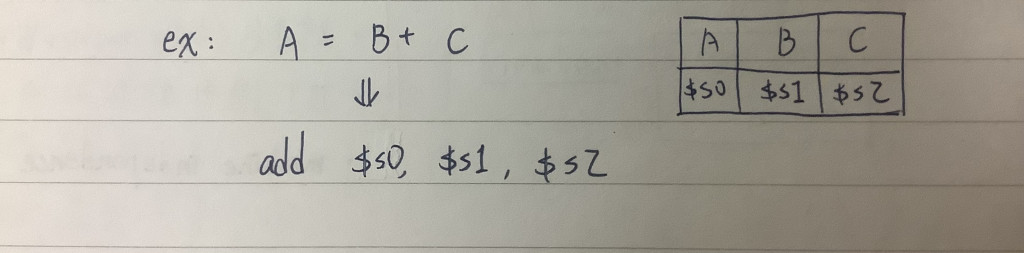 ex: A = B + C
A B C
$s0 $s1 $s2
⇓
add $s0, $s1, $s2